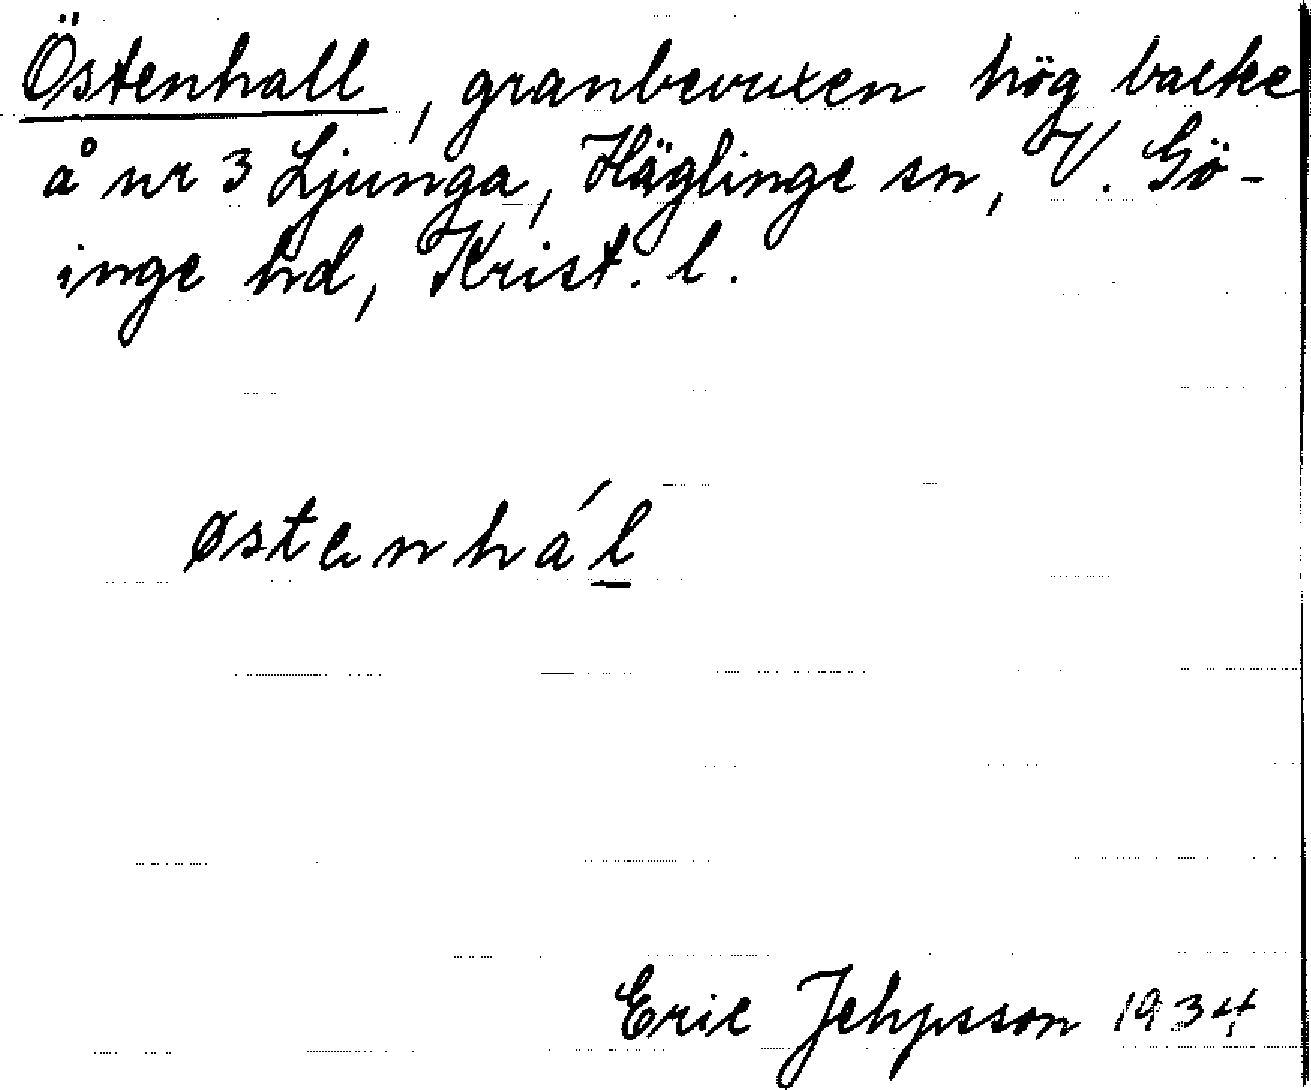 Östenhall, granbevuxen hög backe
å nr 3 Ljunga, Häglinge sn, V. Gö-
inge hd, Krist. l.
østenhál
Eric Jehpsson 1934